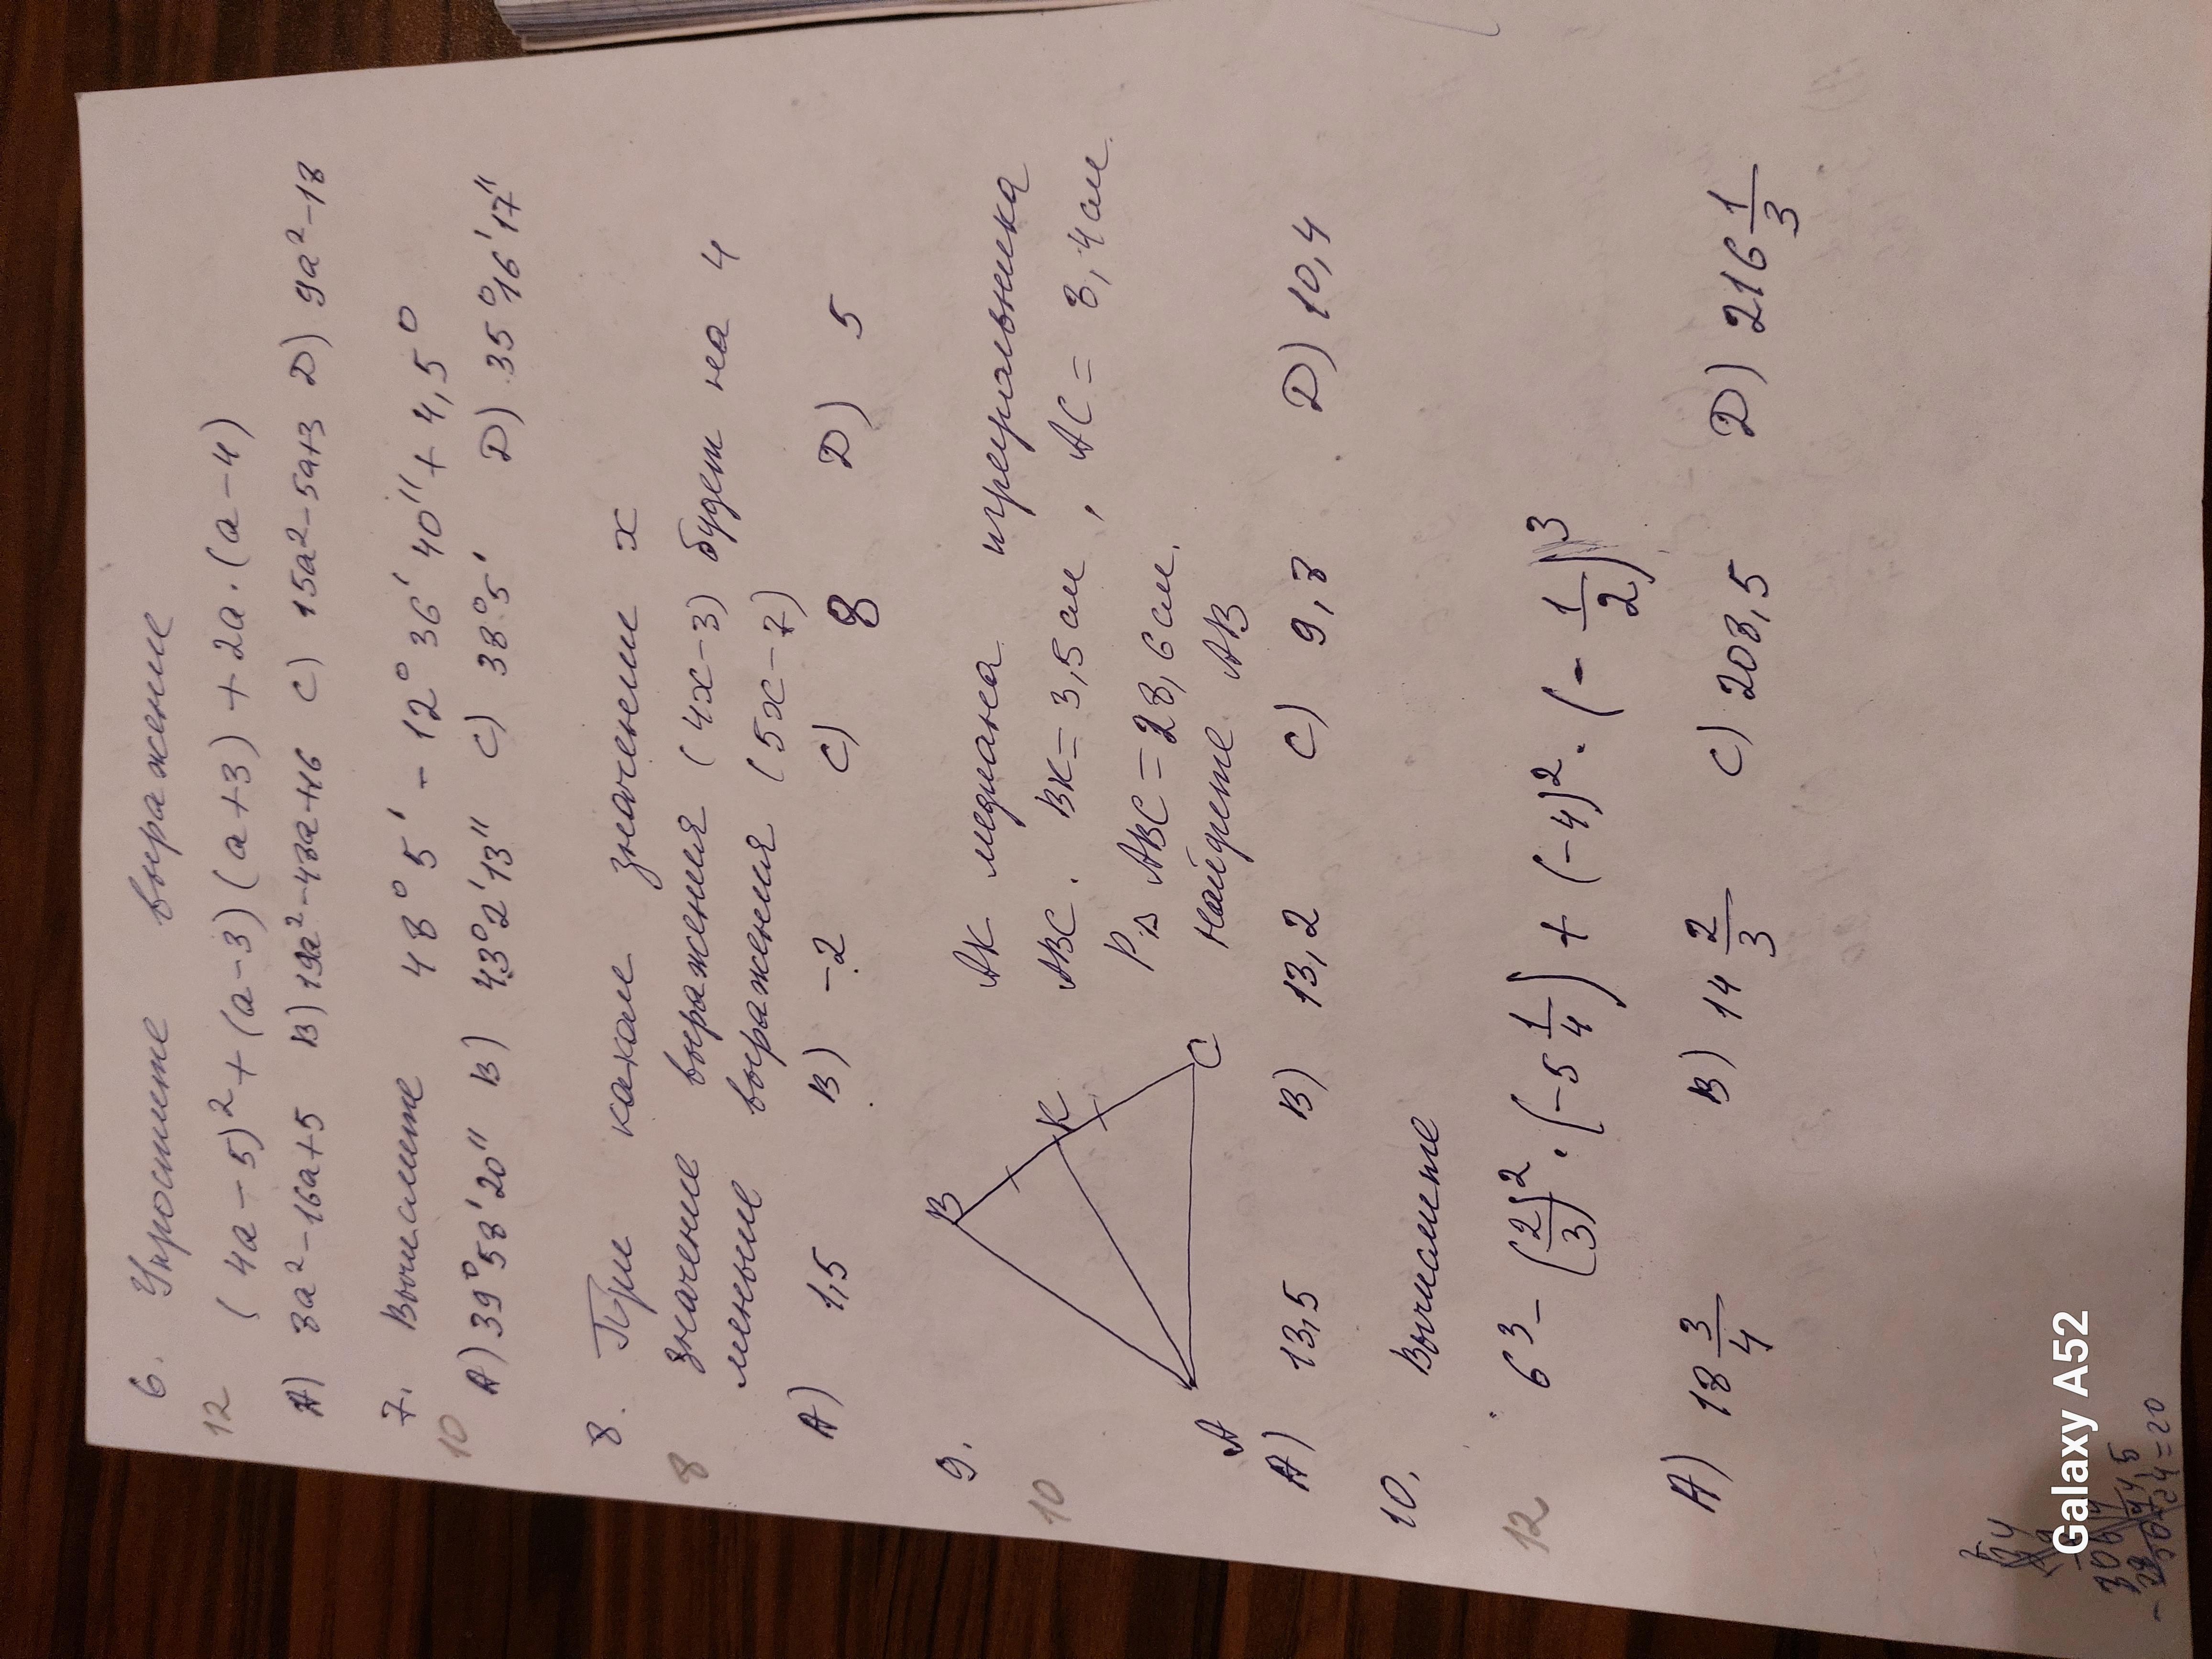 6. Упростите выражение
12 (4a-5)² + (a-3)(a+3) + 2a·(a-4)
A) 3a²-16a+5 B) 19a²-48a+16 C) 15a²-5a+3 D) 9a²-18
7. Вычислите 48°5' - 12°36'40" + 4,5°
10 A) 39°58'20" B) 43°2'13" C) 38°5' D) 35°16'17"
8. При каком значении x
8 значение выражения (4x-3) будет на 4
меньше выражения (5x-7)
A) 1,5 B) -2 C) 8 D) 5
9. AK медиана треугольника
10 ABC. BK=3,5см, AC=8,4см
P△ABC=28,6см.
Найдите AB
B
K
C
A
A) 13,5 B) 13,2 C) 9,8 D) 10,4
10. Вычислите
12 6³ - (2/3)²·(-5 1/4) + (-4)²·(-1/2)³
A) 18 3/4 B) 14 2/3 C) 208,5 D) 216 1/3
Galaxy A52